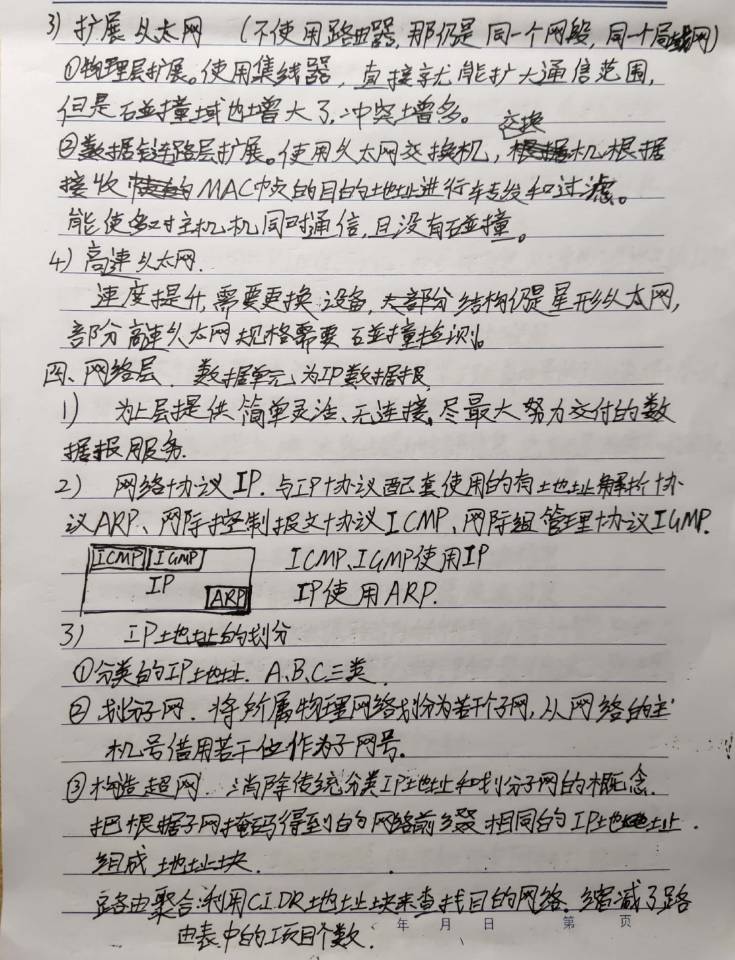 3) 扩展以太网 (不使用路由器,那仍是同一个网段,同一个局域网)
①物理层扩展。使用集线器,直接就能扩大通信范围,
但是碰撞域也增大了,冲突增多。
②数据链路层扩展。使用以太网交换机,交换机根据
接收的MAC帧的目的地址进行转发和过滤。
能使多对主机机同时通信,且没有碰撞。
4) 高速以太网.
速度提升,需要更换设备,大部分结构仍是星形以太网,
部分高速以太网规格需要碰撞检测。
四、网络层. 数据单元为IP数据报.
1) 为上层提供简单灵活、无连接、尽最大努力交付的数
据报服务.
2) 网络协议IP.与IP协议配套使用的有地址解析协
议ARP、网际控制报文协议ICMP、网际组管理协议IGMP.
ICMP IGMP ICMP、IGMP使用IP
IP ARP IP使用ARP.
3) IP地址的划分
①分类的IP地址. A、B、C三类.
②划分子网. 将所属物理网络划份为若干个子网,从网络的主
机号借用若干位作为子网号.
③构造超网. 消除传统分类IP地址和划分子网的概念.
把根据子网掩码得到的网络前缀相同的IP地址.
组成地址块.
路由聚合:利用CIDR地址块来查找目的网络.缩减了路
由表中的项目个数.
年 月 日 第 页